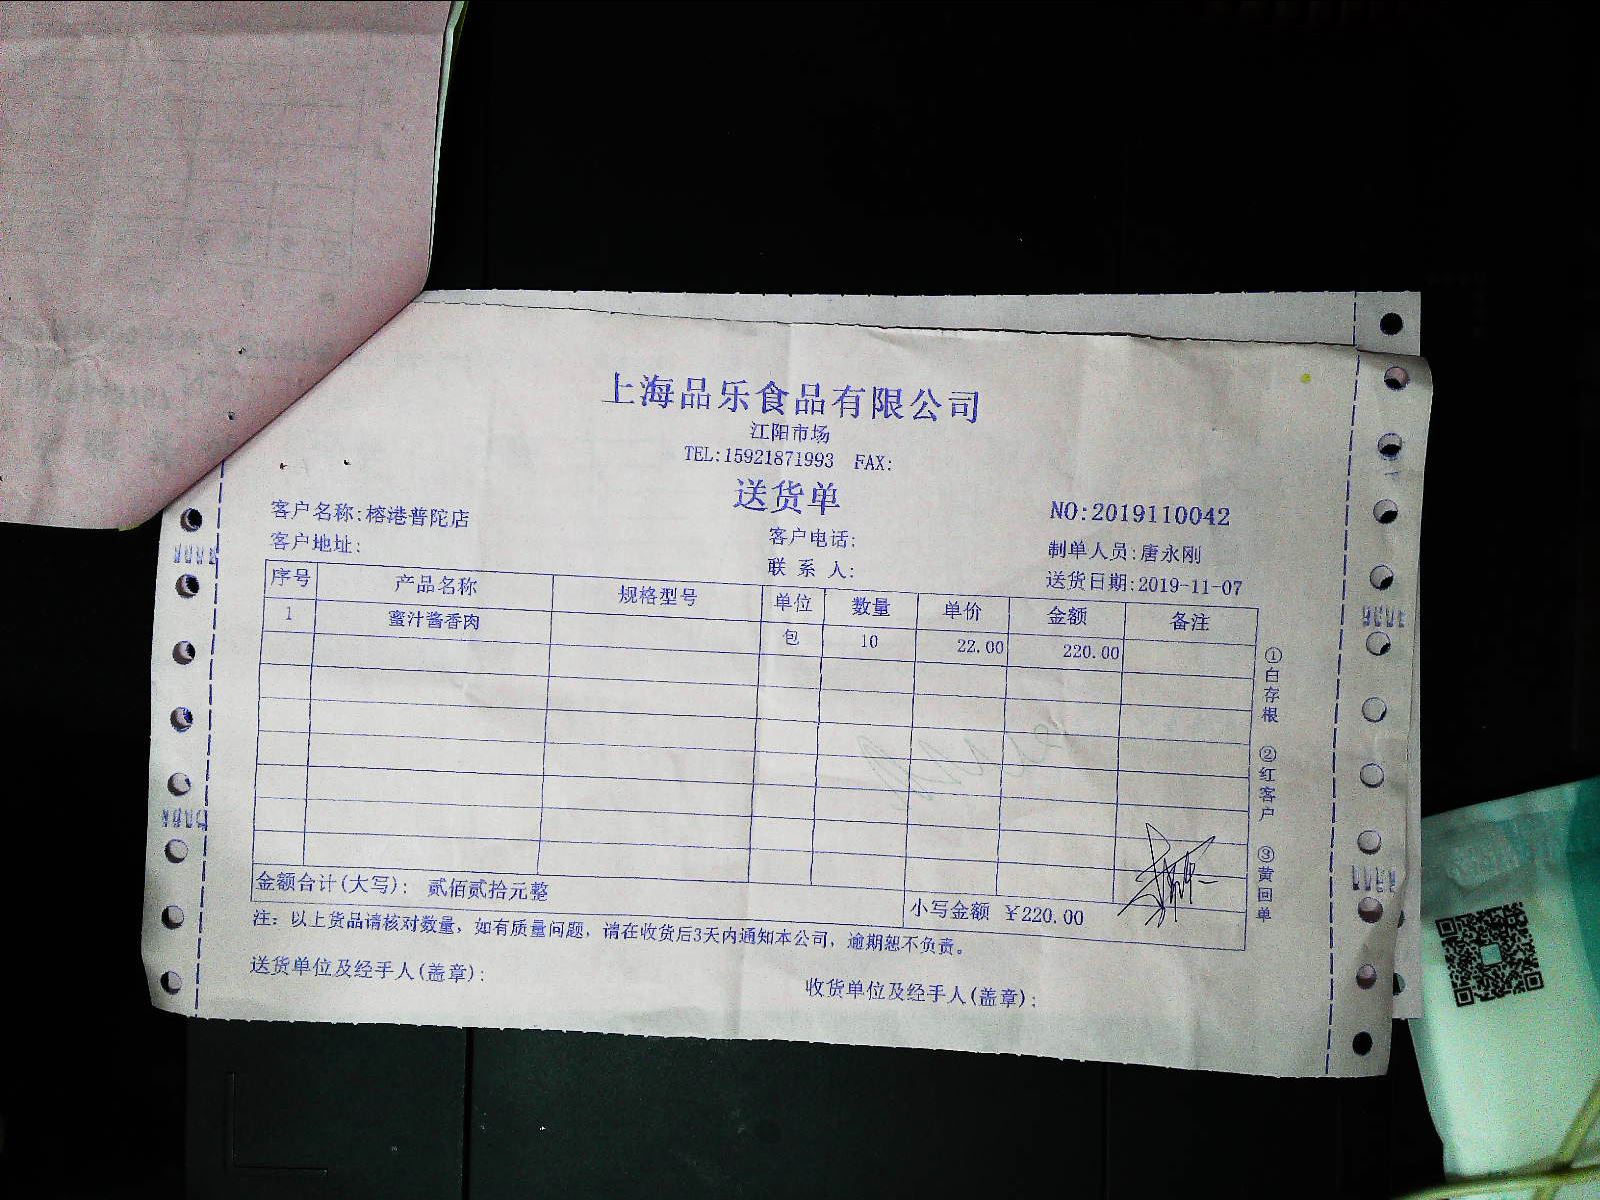 上海品乐食品有限公司
江阳市场
TEL:15921871993 FAX:
送货单
客户名称:榕港普陀店 客户电话: NO:2019110042
客户地址: 联 系 人: 制单人员:唐永刚
送货日期:2019-11-07
序号 产品名称 规格型号 单位 数量 单价 金额 备注
1 蜜汁酱香肉 包 10 22.00 220.00
金额合计(大写): 贰佰贰拾元整 小写金额 ￥220.00
注: 以上货品请核对数量, 如有质量问题, 请在收货后3天内通知本公司, 逾期恕不负责。
送货单位及经手人(盖章): 收货单位及经手人(盖章):
①白存根 ②红客户 ③黄回单